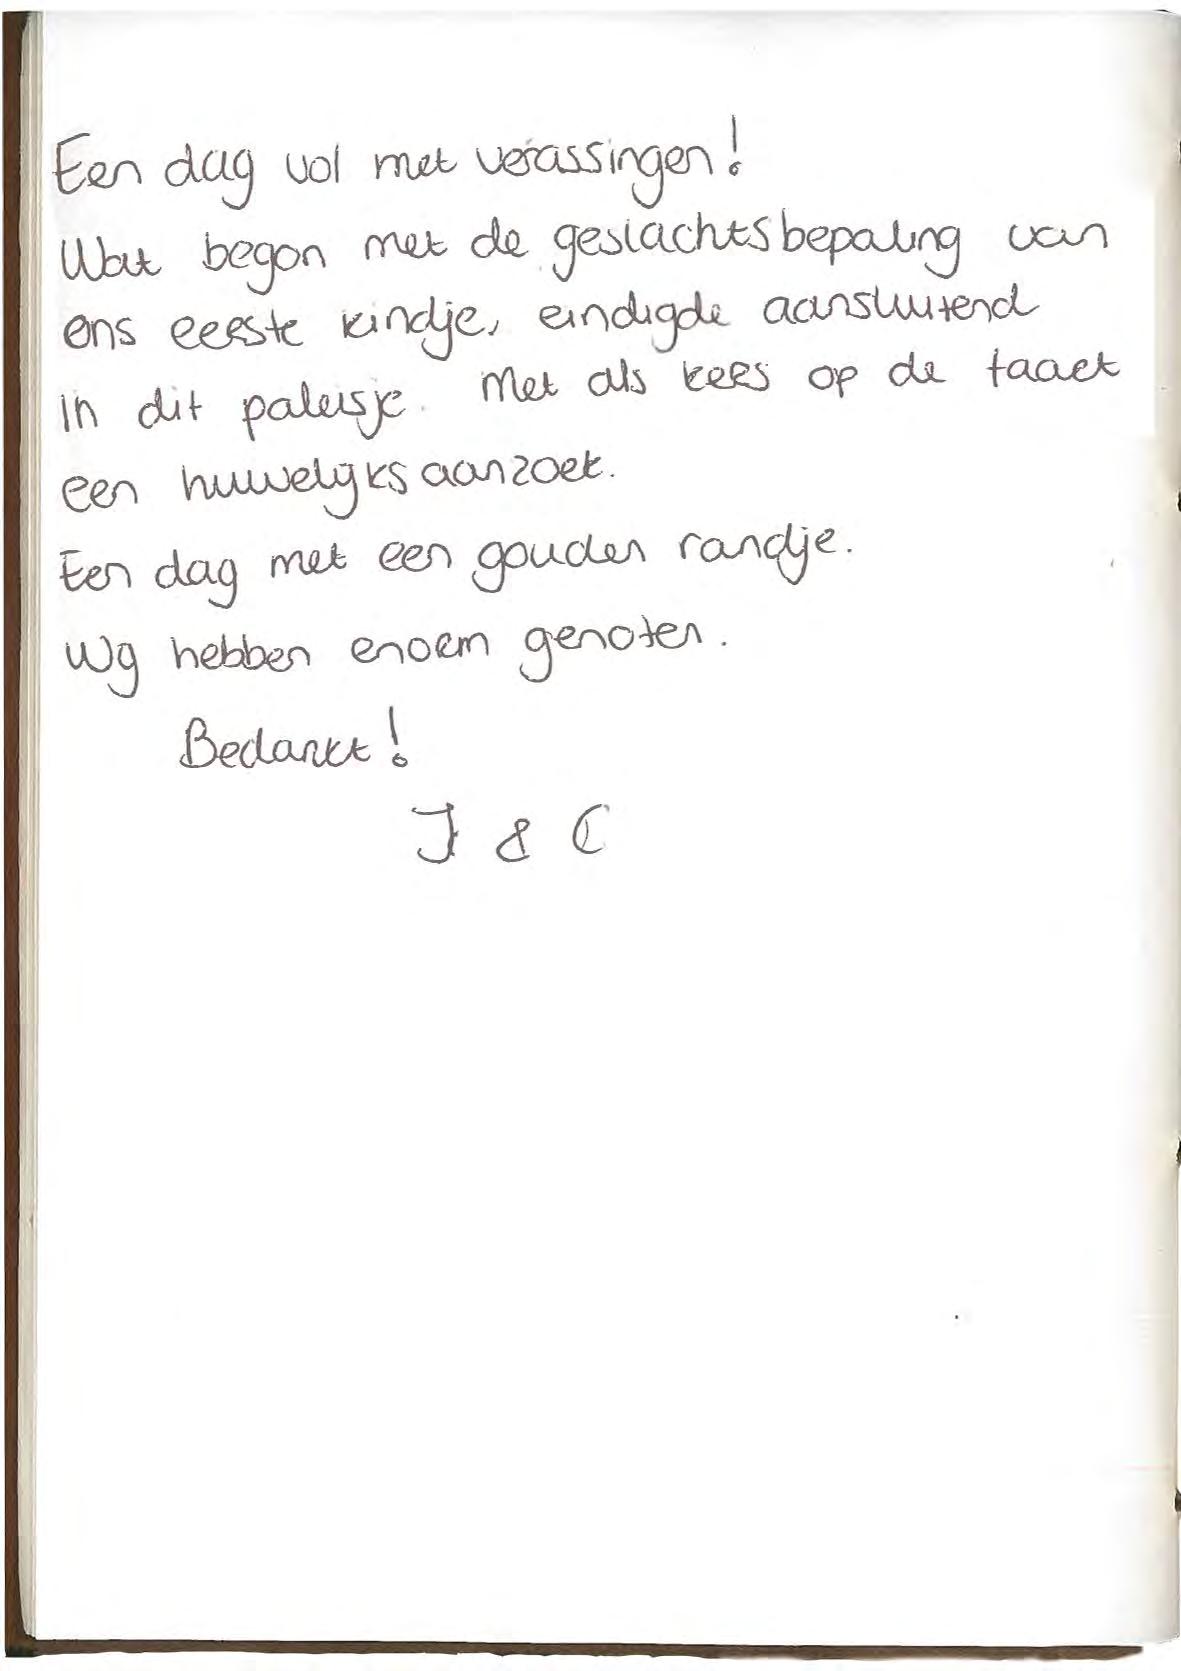 Een dag vol met verassingen!
Wat begon met de geslachtsbepaling van
ons eerste kindje, eindigde aansluitend
in dit paleisje. Met als kers op de taart
een huwelijksaanzoek.
Een dag met een gouden randje.
Wij hebben enorm genoten.
Bedankt!
J & C